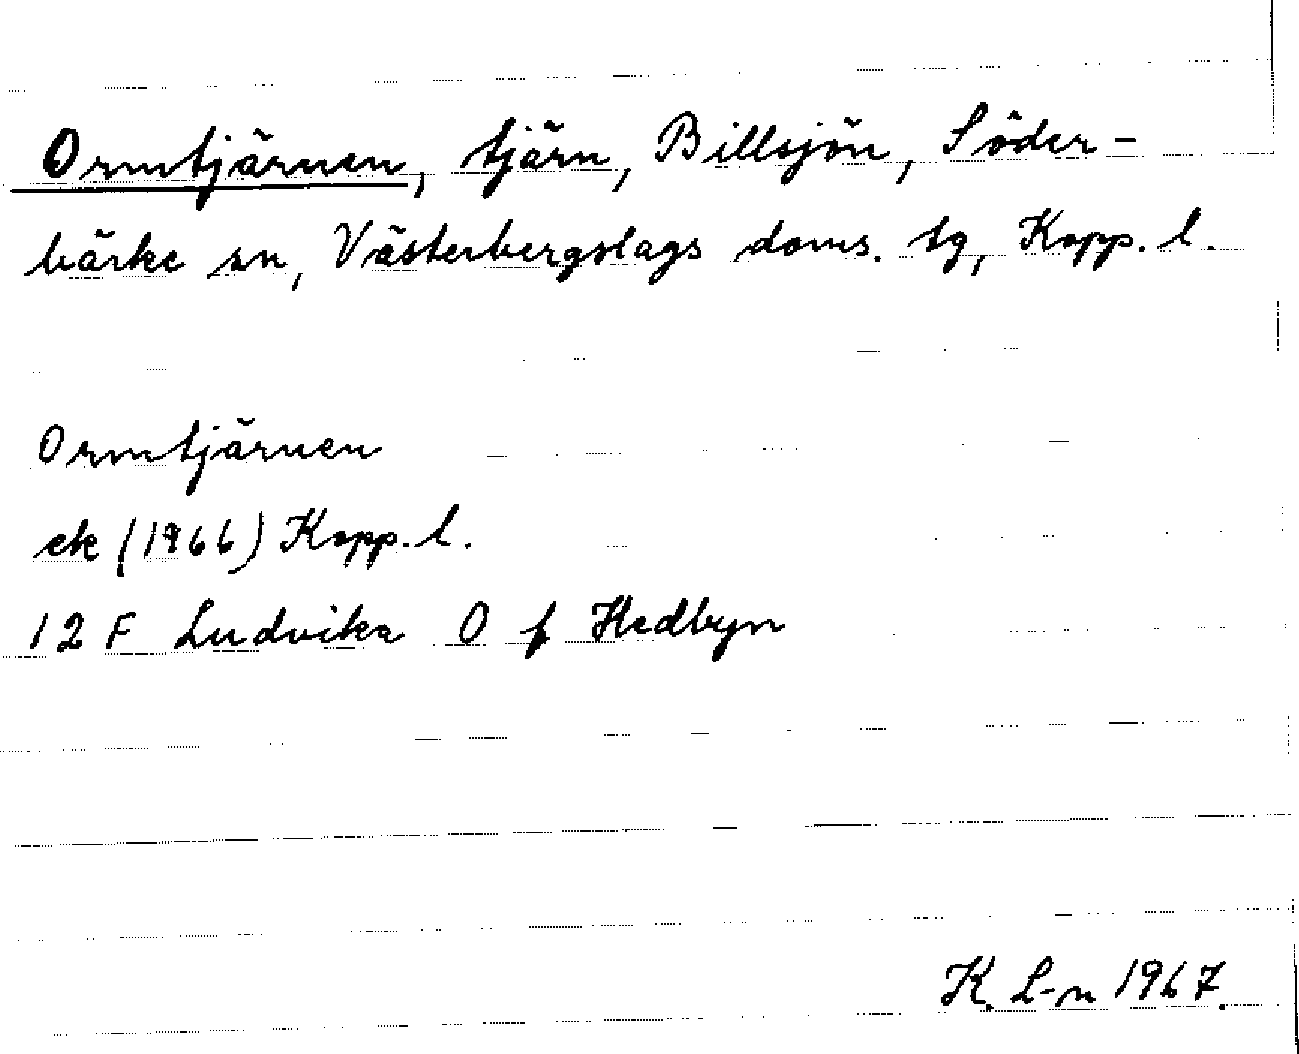 Ormtjärnen, tjärn, Billsjön, Söder-
bärke sn, Västerbergslags doms. tg, Kopp. l.
Ormtjärnen
ek (1966) Kopp. l.
12 F Ludvika O f Hedbyn
K. L-n 1967.